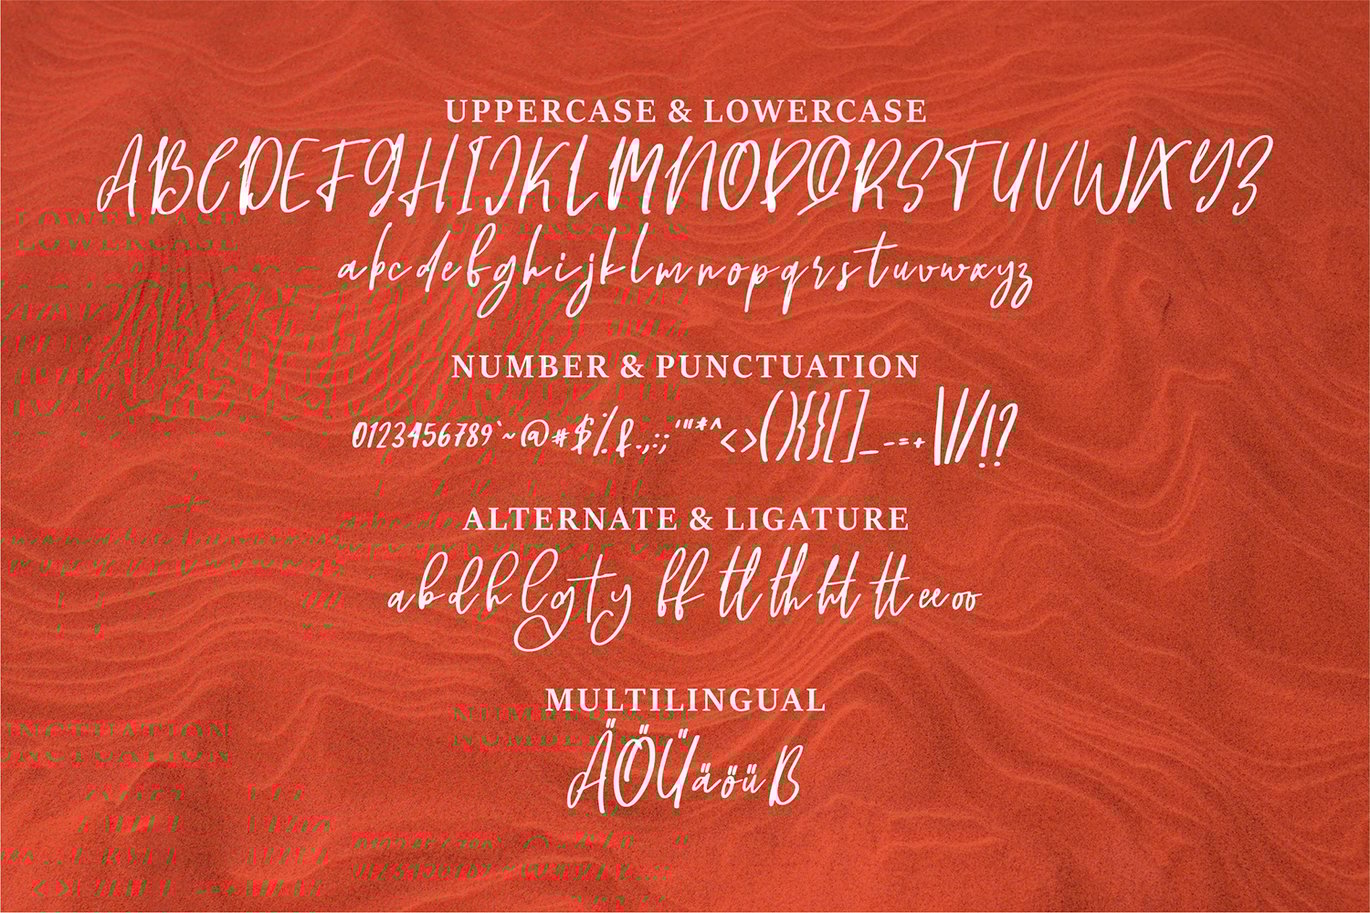 UPPERCASE & LOWERCASE
ABCDEFGHIJKLMNOPQRSTUVWXYZ
abcdefghijklmnopqrstuvwxyz
NUMBER & PUNCTUATION
0123456789`~@#$%&.,:;'"*^<>(){}[]_-=+|\/!?
ALTERNATE & LIGATURE
abdhlgty ff tl th ht tt ee oo
MULTILINGUAL
ÄÖÜäöüß